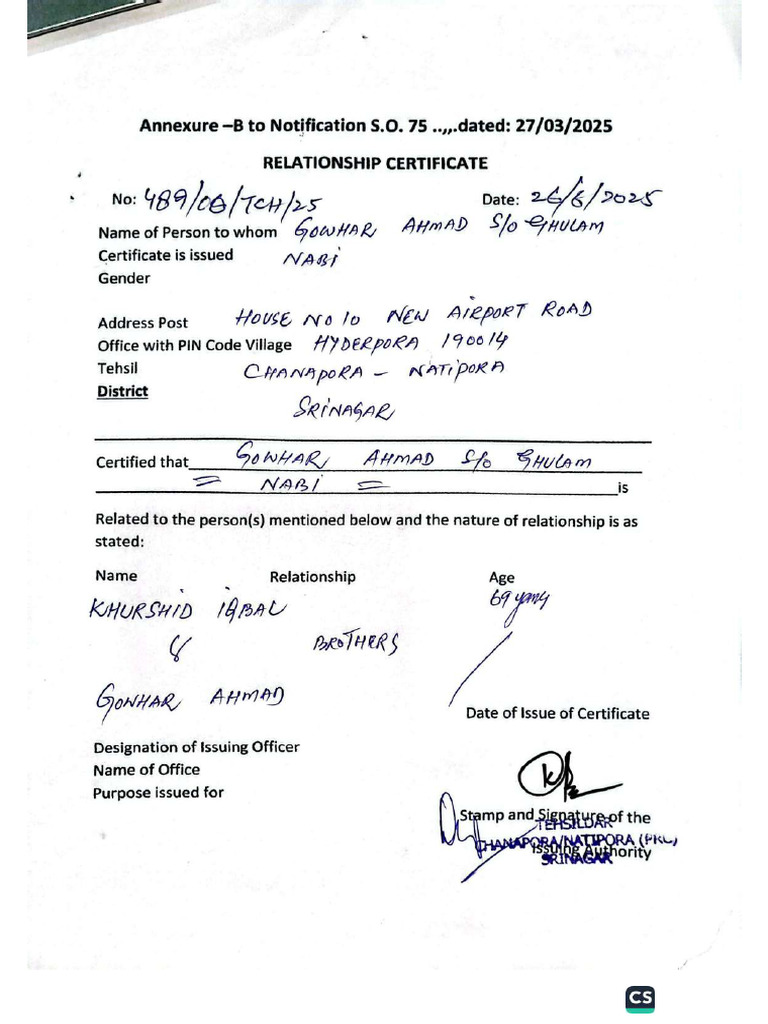 Annexure –B to Notification S.O. 75 ..,,.dated: 27/03/2025
RELATIONSHIP CERTIFICATE
No: 489/OQ/TCH/25 Date: 26/6/2025
Name of Person to whom GOWHAR AHMAD S/o GHULAM
Certificate is issued NABI
Gender
Address Post HOUSE NO 10 NEW AIRPORT ROAD
Office with PIN Code Village HYDERPORA 190014
Tehsil CHANAPORA – NATIPORA
District
SRINAGAR
Certified that GOWHAR AHMAD S/o GHULAM
= NABI = is
Related to the person(s) mentioned below and the nature of relationship is as
stated:
Name Relationship Age
KHURSHID IQBAL 69 years
& BROTHERS
GOWHAR AHMAD
Date of Issue of Certificate
Designation of Issuing Officer
Name of Office
Purpose issued for
Stamp and Signature of the
TEHSILDAR
CHANAPORA/NATIPORA (PKL)
Issuing Authority
SRINAGAR
CS